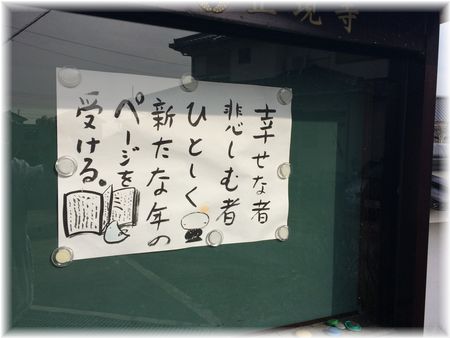 正現寺
幸せな者
悲しむ者
ひとしく
新たな年の
ページを
受ける。